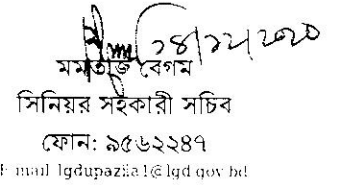 ১৪/১২/২০২০
মমতাজ বেগম
সিনিয়র সহকারী সচিব
ফোন: ৯৫৬২২৪৭
E-mail lgdupazila1@lgd.gov.bd